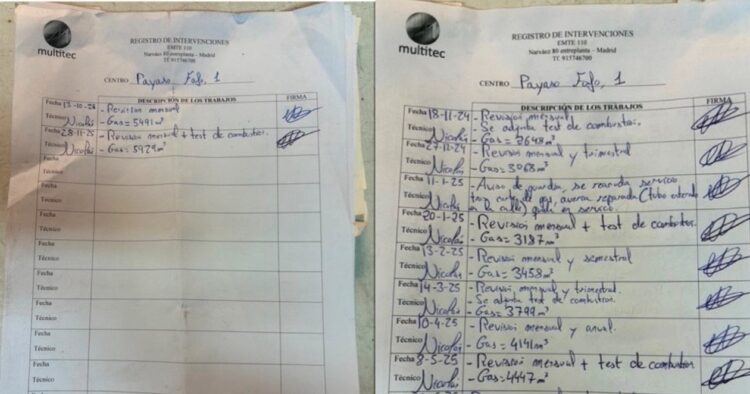 multitec
REGISTRO DE INTERVENCIONES
EMTE 110
Narváez 80 entreplanta – Madrid
Tf. 915746700
CENTRO: Payaso Fofo, 1
DESCRIPCIÓN DE LOS TRABAJOS FIRMA
Fecha - Revisión mensual
Técnico Nicolás - Gas = 5491 m³
Fecha 28-11-25 - Revisión mensual + test de combustión.
Técnico Nicolás - Gas = 5929 m³
Fecha
Técnico
Fecha
Técnico
Fecha
Técnico
Fecha
Técnico
Fecha
Técnico
Fecha
Técnico
Fecha
Técnico
multitec
REGISTRO DE INTERVENCIONES
EMTE 110
Narváez 80 entreplanta – Madrid
Tf. 915746700
CENTRO: Payaso Fofo, 1
DESCRIPCIÓN DE LOS TRABAJOS FIRMA
Fecha 18-11-24 - Revisión mensual
- Se adjunta test de combustión.
Técnico Nicolás - Gas = 2648 m³
Fecha 27-12-24 - Revisión mensual y trimestral
Técnico Nicolás - Gas = 3068 m³
Fecha 11-1-25 - Aviso de guardia, se reanuda servicio
tras corte de gas, averia reparada (tubo enterrado
Técnico Nicolás en la calle) queda en servicio.
Fecha 20-1-25 - Revisión mensual + test de combustión.
Técnico Nicolás - Gas = 3187 m³
Fecha 13-2-25 - Revisión mensual y semestral
Técnico Nicolás - Gas = 3458 m³
Fecha 14-3-25 - Revisión mensual y trimestral.
- Se adjunta test de combustión.
Técnico Nicolás - Gas = 3799 m³
Fecha 10-4-25 - Revisión mensual y anual.
Técnico Nicolás - Gas = 4141 m³
Fecha 8-5-25 - Revisión mensual + test de combustión
Técnico Nicolás - Gas = 4447 m³